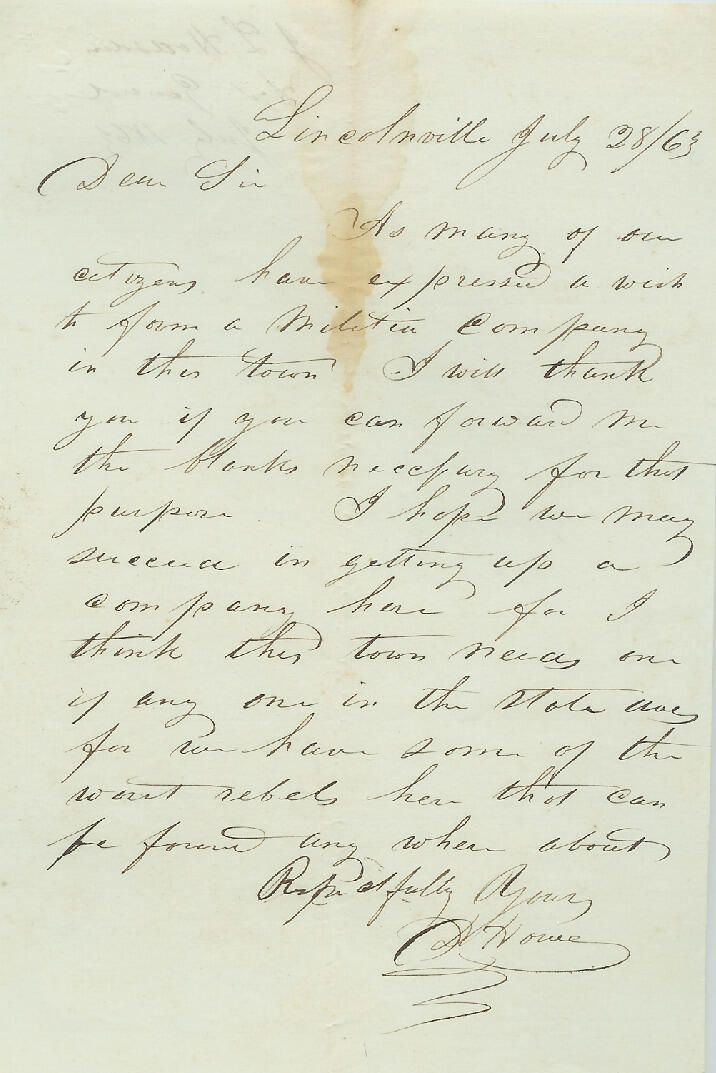 Lincolnville July 28/63
Dear Sir
As many of our
citizens have expressed a wish
to form a Militia Company
in this town I will thank
you if you can forward me
the blanks necessary for that
purpose I hope we may
succeed in getting up a
company here for I
think this town needs one
if any one in the State does
for we have some of the
worst rebels here that can
be found any where about
Respectfully Yours
D Howe